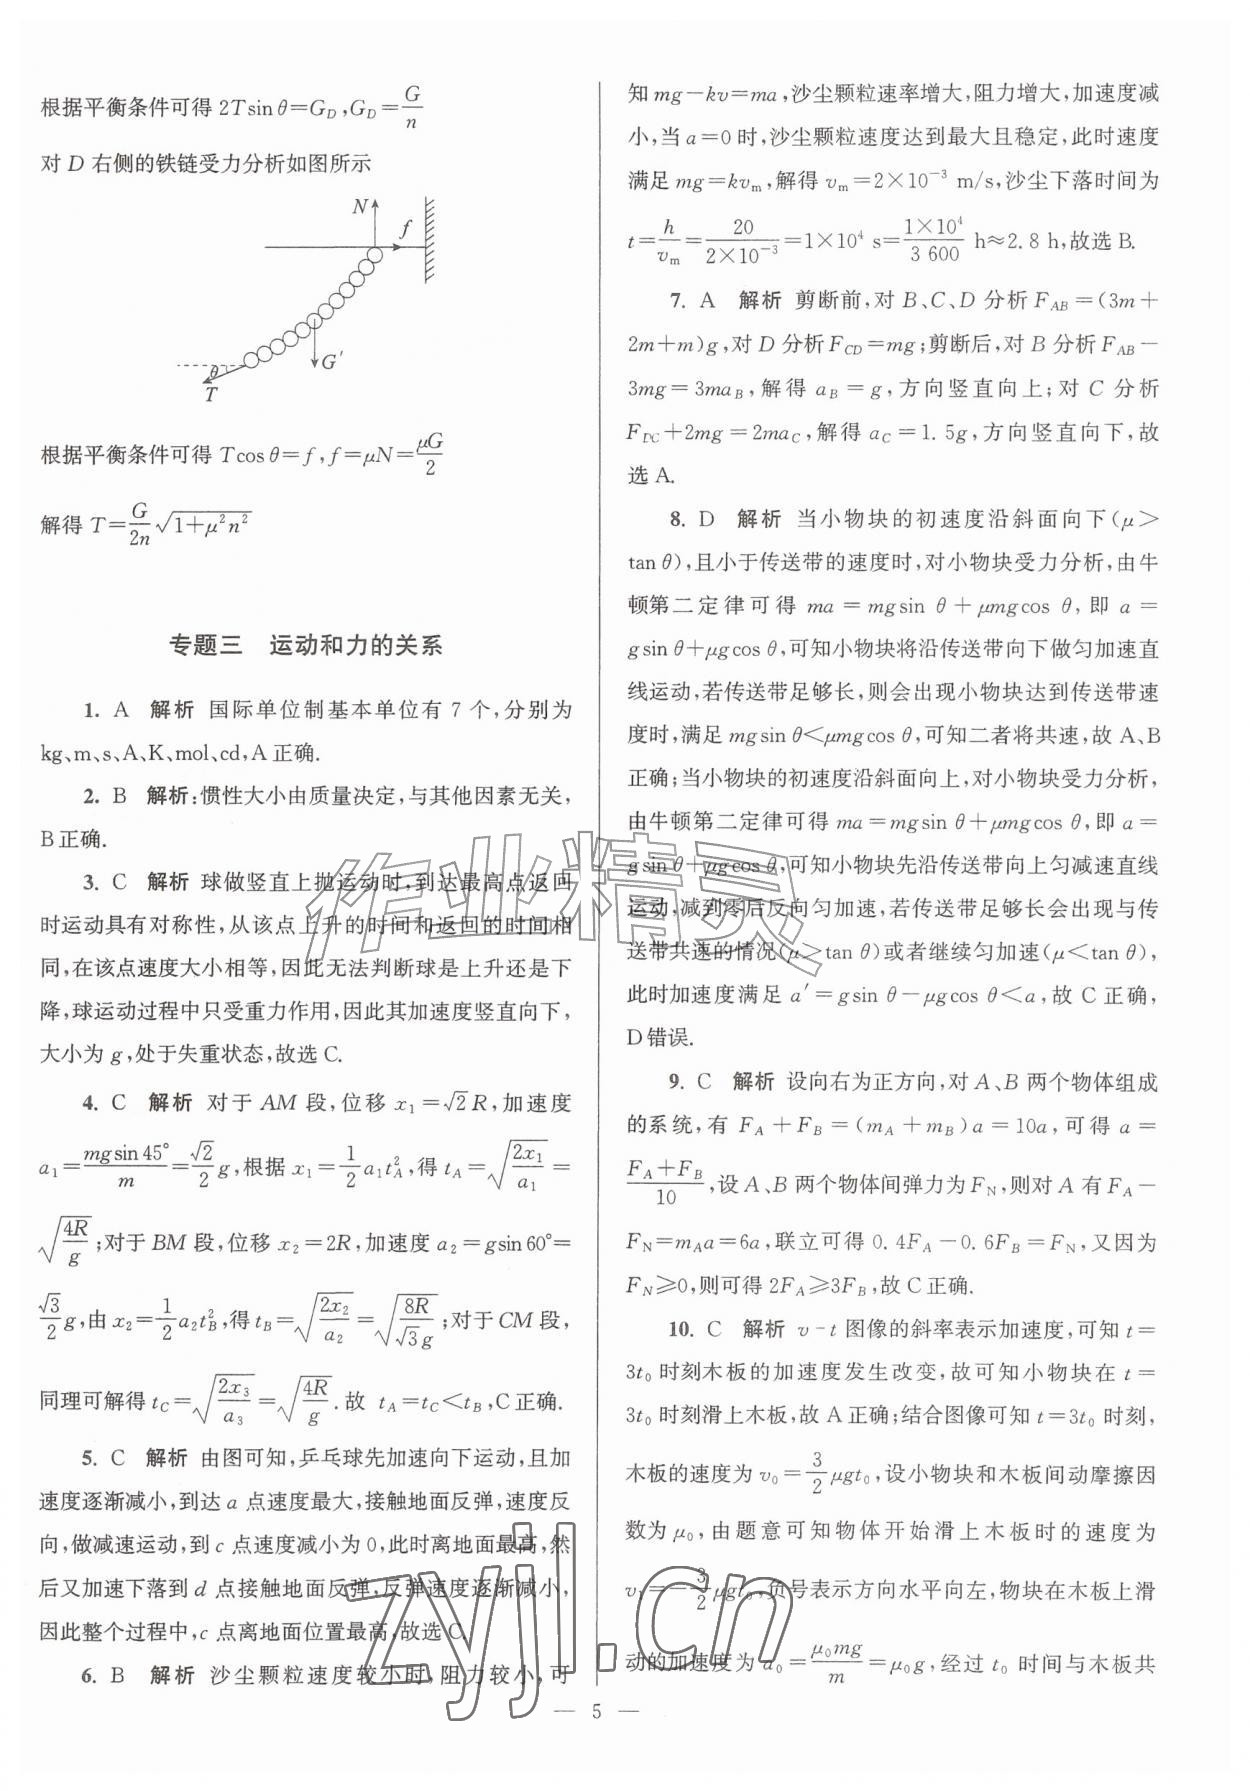 根据平衡条件可得 2Tsin θ=G_D,G_D=G/n
对 D 右侧的铁链受力分析如图所示
N
f
G′
θ
T
根据平衡条件可得 Tcos θ=f,f=μN=μG/2
解得 T=G/2n √(1+μ²n²)
专题三 运动和力的关系
1. A 解析 国际单位制基本单位有 7 个,分别为
kg、m、s、A、K、mol、cd,A 正确.
2. B 解析:惯性大小由质量决定,与其他因素无关,
B 正确.
3. C 解析 球做竖直上抛运动时,到达最高点返回
时运动具有对称性,从该点上升的时间和返回的时间相
同,在该点速度大小相等,因此无法判断球是上升还是下
降,球运动过程中只受重力作用,因此其加速度竖直向下,
大小为 g,处于失重状态,故选 C.
4. C 解析 对于 AM 段,位移 x₁=√2R,加速度
a₁=mgsin 45°/m=√2/2 g,根据 x₁=1/2 a₁t_A²,得 t_A=√(2x₁/a₁)=
√(4R/g);对于 BM 段,位移 x₂=2R,加速度 a₂=gsin 60°=
√3/2 g,由 x₂=1/2 a₂t_B²,得 t_B=√(2x₂/a₂)=√(8R/√3g);对于 CM 段,
同理可解得 t_C=√(2x₃/a₃)=√(4R/g).故 t_A=t_C<t_B,C 正确.
5. C 解析 由图可知,乒乓球先加速向下运动,且加
速度逐渐减小,到达 a 点速度最大,接触地面反弹,速度反
向,做减速运动,到 c 点速度减小为 0,此时离地面最高,然
后又加速下落到 d 点接触地面反弹,反弹速度逐渐减小,
因此整个过程中,c 点离地面位置最高,故选 C.
6. B 解析 沙尘颗粒速度较小时,阻力较小,可
知 mg-kv=ma,沙尘颗粒速率增大,阻力增大,加速度减
小,当 a=0 时,沙尘颗粒速度达到最大且稳定,此时速度
满足 mg=kv_m,解得 v_m=2×10⁻³ m/s,沙尘下落时间为
t=h/v_m=20/(2×10⁻³)=1×10⁴ s=(1×10⁴)/3 600 h≈2.8 h,故选 B.
7. A 解析 剪断前,对 B、C、D 分析 F_AB=(3m+
2m+m)g,对 D 分析 F_CD=mg;剪断后,对 B 分析 F_AB-
3mg=3ma_B,解得 a_B=g,方向竖直向上;对 C 分析
F_DC+2mg=2ma_C,解得 a_C=1.5g,方向竖直向下,故
选 A.
8. D 解析 当小物块的初速度沿斜面向下(μ>
tan θ),且小于传送带的速度时,对小物块受力分析,由牛
顿第二定律可得 ma=mgsin θ+μmgcos θ,即 a=
gsin θ+μgcos θ,可知小物块将沿传送带向下做匀加速直
线运动,若传送带足够长,则会出现小物块达到传送带速
度时,满足 mgsin θ<μmgcos θ,可知二者将共速,故 A、B
正确;当小物块的初速度沿斜面向上,对小物块受力分析,
由牛顿第二定律可得 ma=mgsin θ+μmgcos θ,即 a=
gsin θ+μgcos θ,可知小物块先沿传送带向上匀减速直线
运动,减到零后反向匀加速,若传送带足够长会出现与传
送带共速的情况(μ>tan θ)或者继续匀加速(μ<tan θ),
此时加速度满足 a′=gsin θ-μgcos θ<a,故 C 正确,
D 错误.
9. C 解析 设向右为正方向,对 A、B 两个物体组成
的系统,有 F_A+F_B=(m_A+m_B)a=10a,可得 a=
(F_A+F_B)/10,设 A、B 两个物体间弹力为 F_N,则对 A 有 F_A-
F_N=m_Aa=6a,联立可得 0.4F_A-0.6F_B=F_N,又因为
F_N≥0,则可得 2F_A≥3F_B,故 C 正确.
10. C 解析 v-t 图像的斜率表示加速度,可知 t=
3t₀ 时刻木板的加速度发生改变,故可知小物块在 t=
3t₀ 时刻滑上木板,故 A 正确;结合图像可知 t=3t₀ 时刻,
木板的速度为 v₀=3/2 μgt₀,设小物块和木板间动摩擦因
数为 μ₀,由题意可知物体开始滑上木板时的速度为
v₁=-3/2 μgt₀,负号表示方向水平向左,物块在木板上滑
动的加速度为 a₀=μ₀mg/m=μ₀g,经过 t₀ 时间与木板共
— 5 —
作业精灵
zyjl.cn